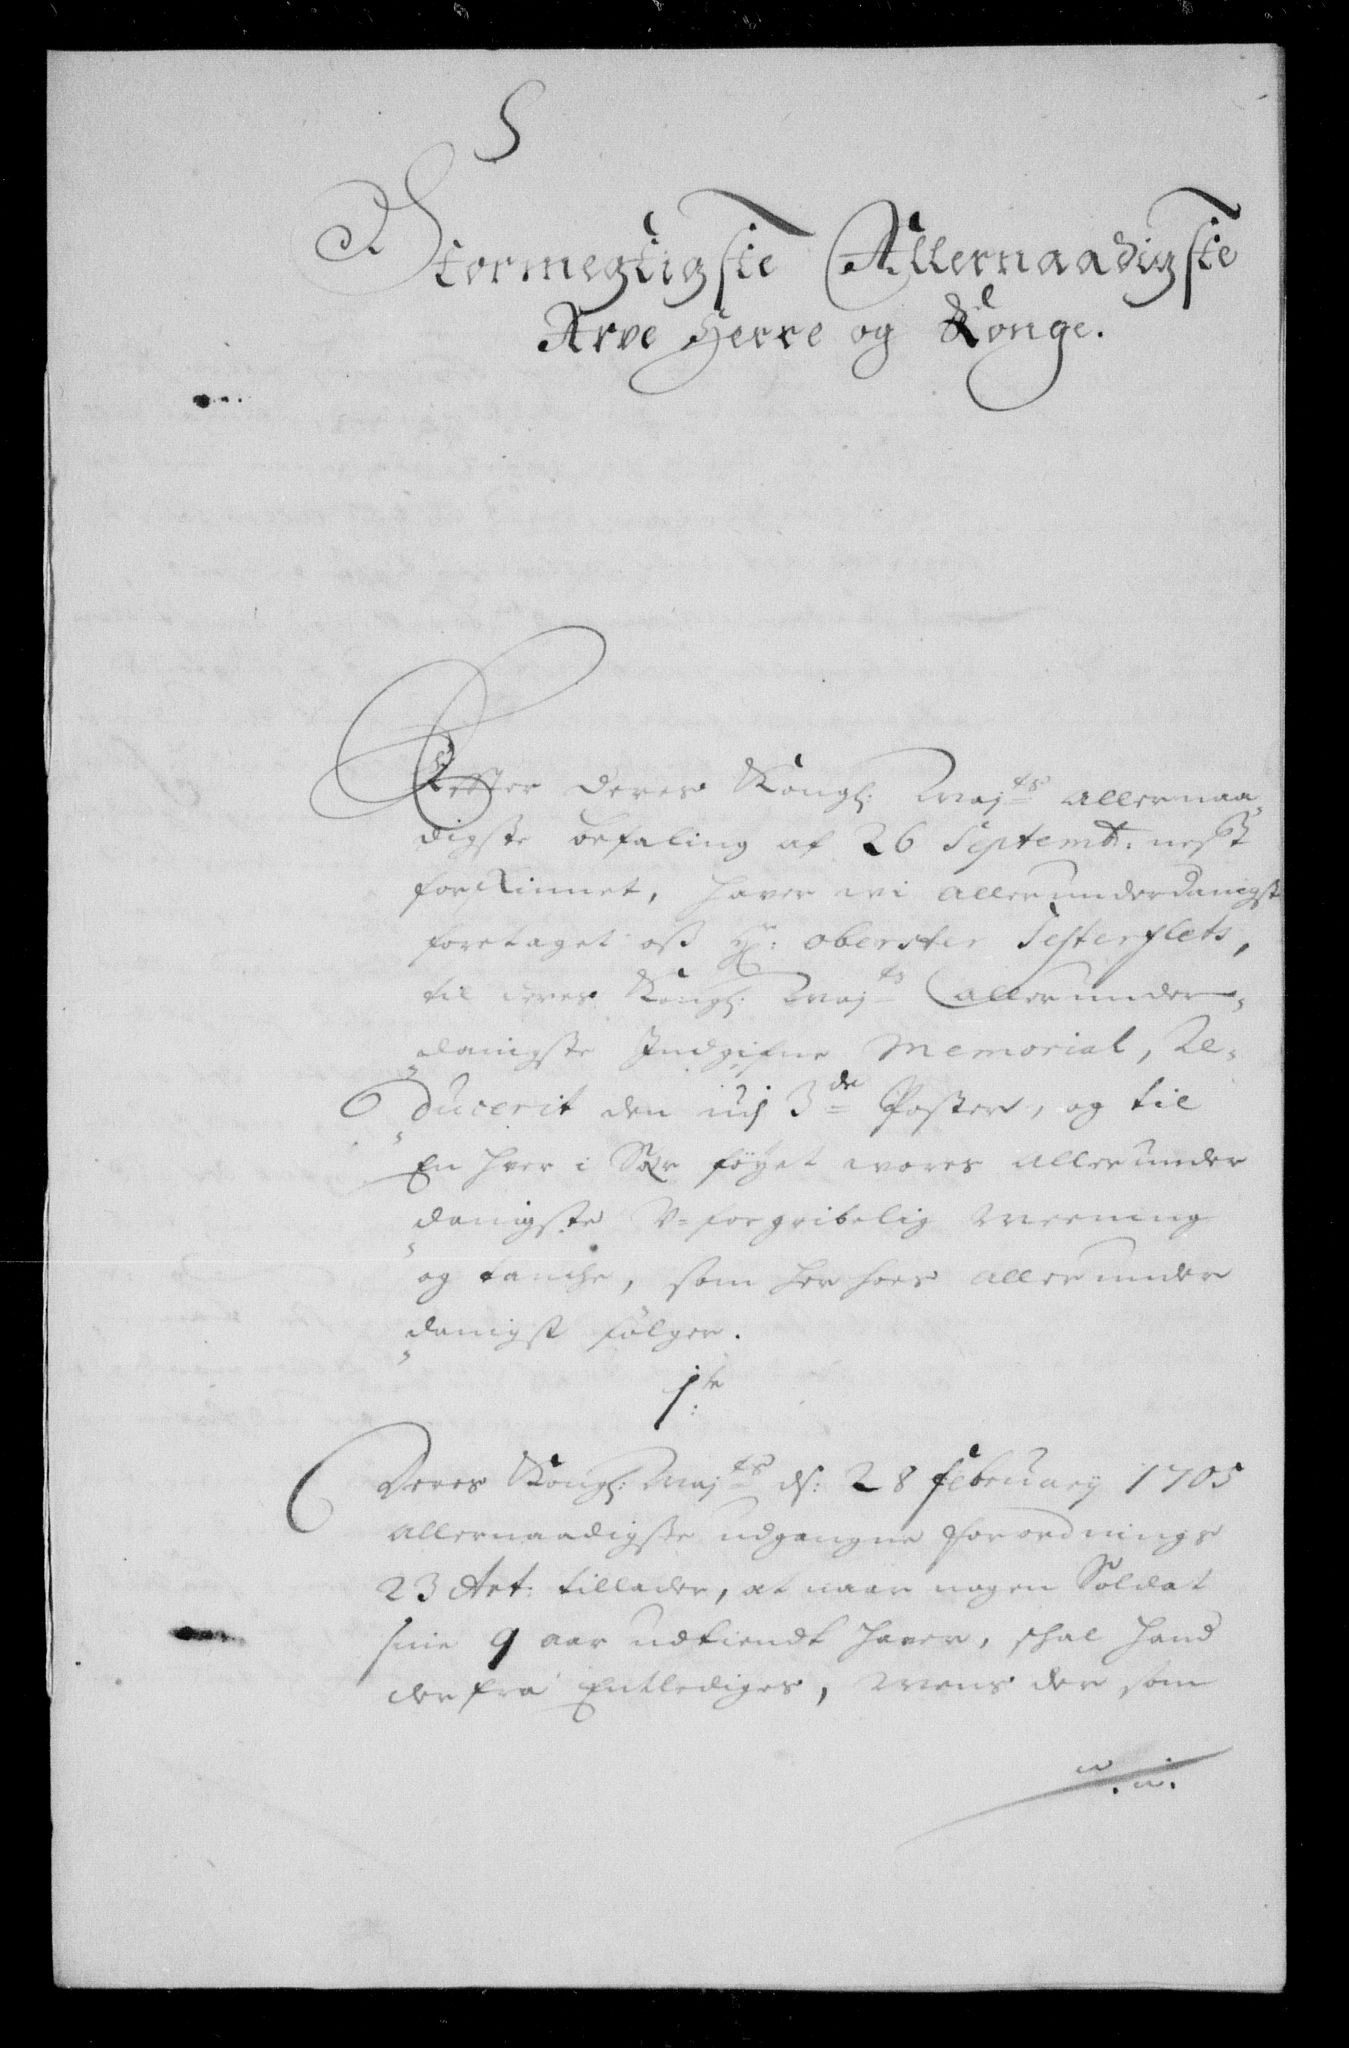 Stormegtigste Allernaadigste
Arve Herre og Konge.
Effter Deres Kongl: Maj:ts allernaa-
digste befaling af 26 Septemb: nest
forschinnet, haver wi allerunderdanigst
foretaget oss Hr: oberster
til deres Kongl: Maj:ts allerunder-
danigste Indgifne Memorial, Re-
ducerit den udj 3de Poster, og til
En hver i Sær føyet wores allerunder
danigste V-forgribelig Meening
og tanche, som her hoes allerunder
danigst følger.
1te
Deres Kongl: Maj:ts d: 28 february 1705
allernaadigste udgangne forordnings
23 Art: tillader, at naar nogen Soldat
sine 9 aar udtiendt haver, schal hand
derfra Entlediges, Mens der som